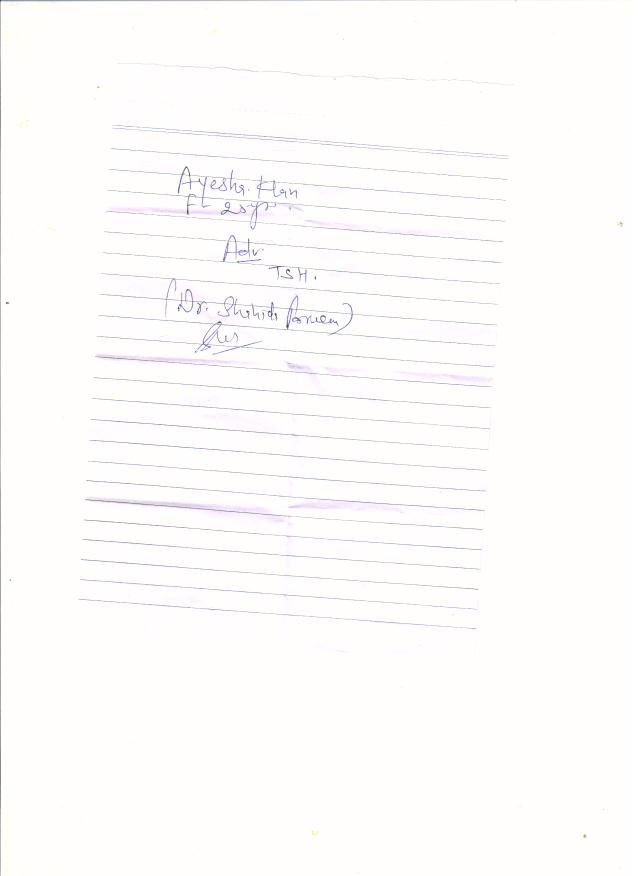 Ayesha Khan
F- 25yr
Adv.
TSH.
(Dr. Shahida Parveen)